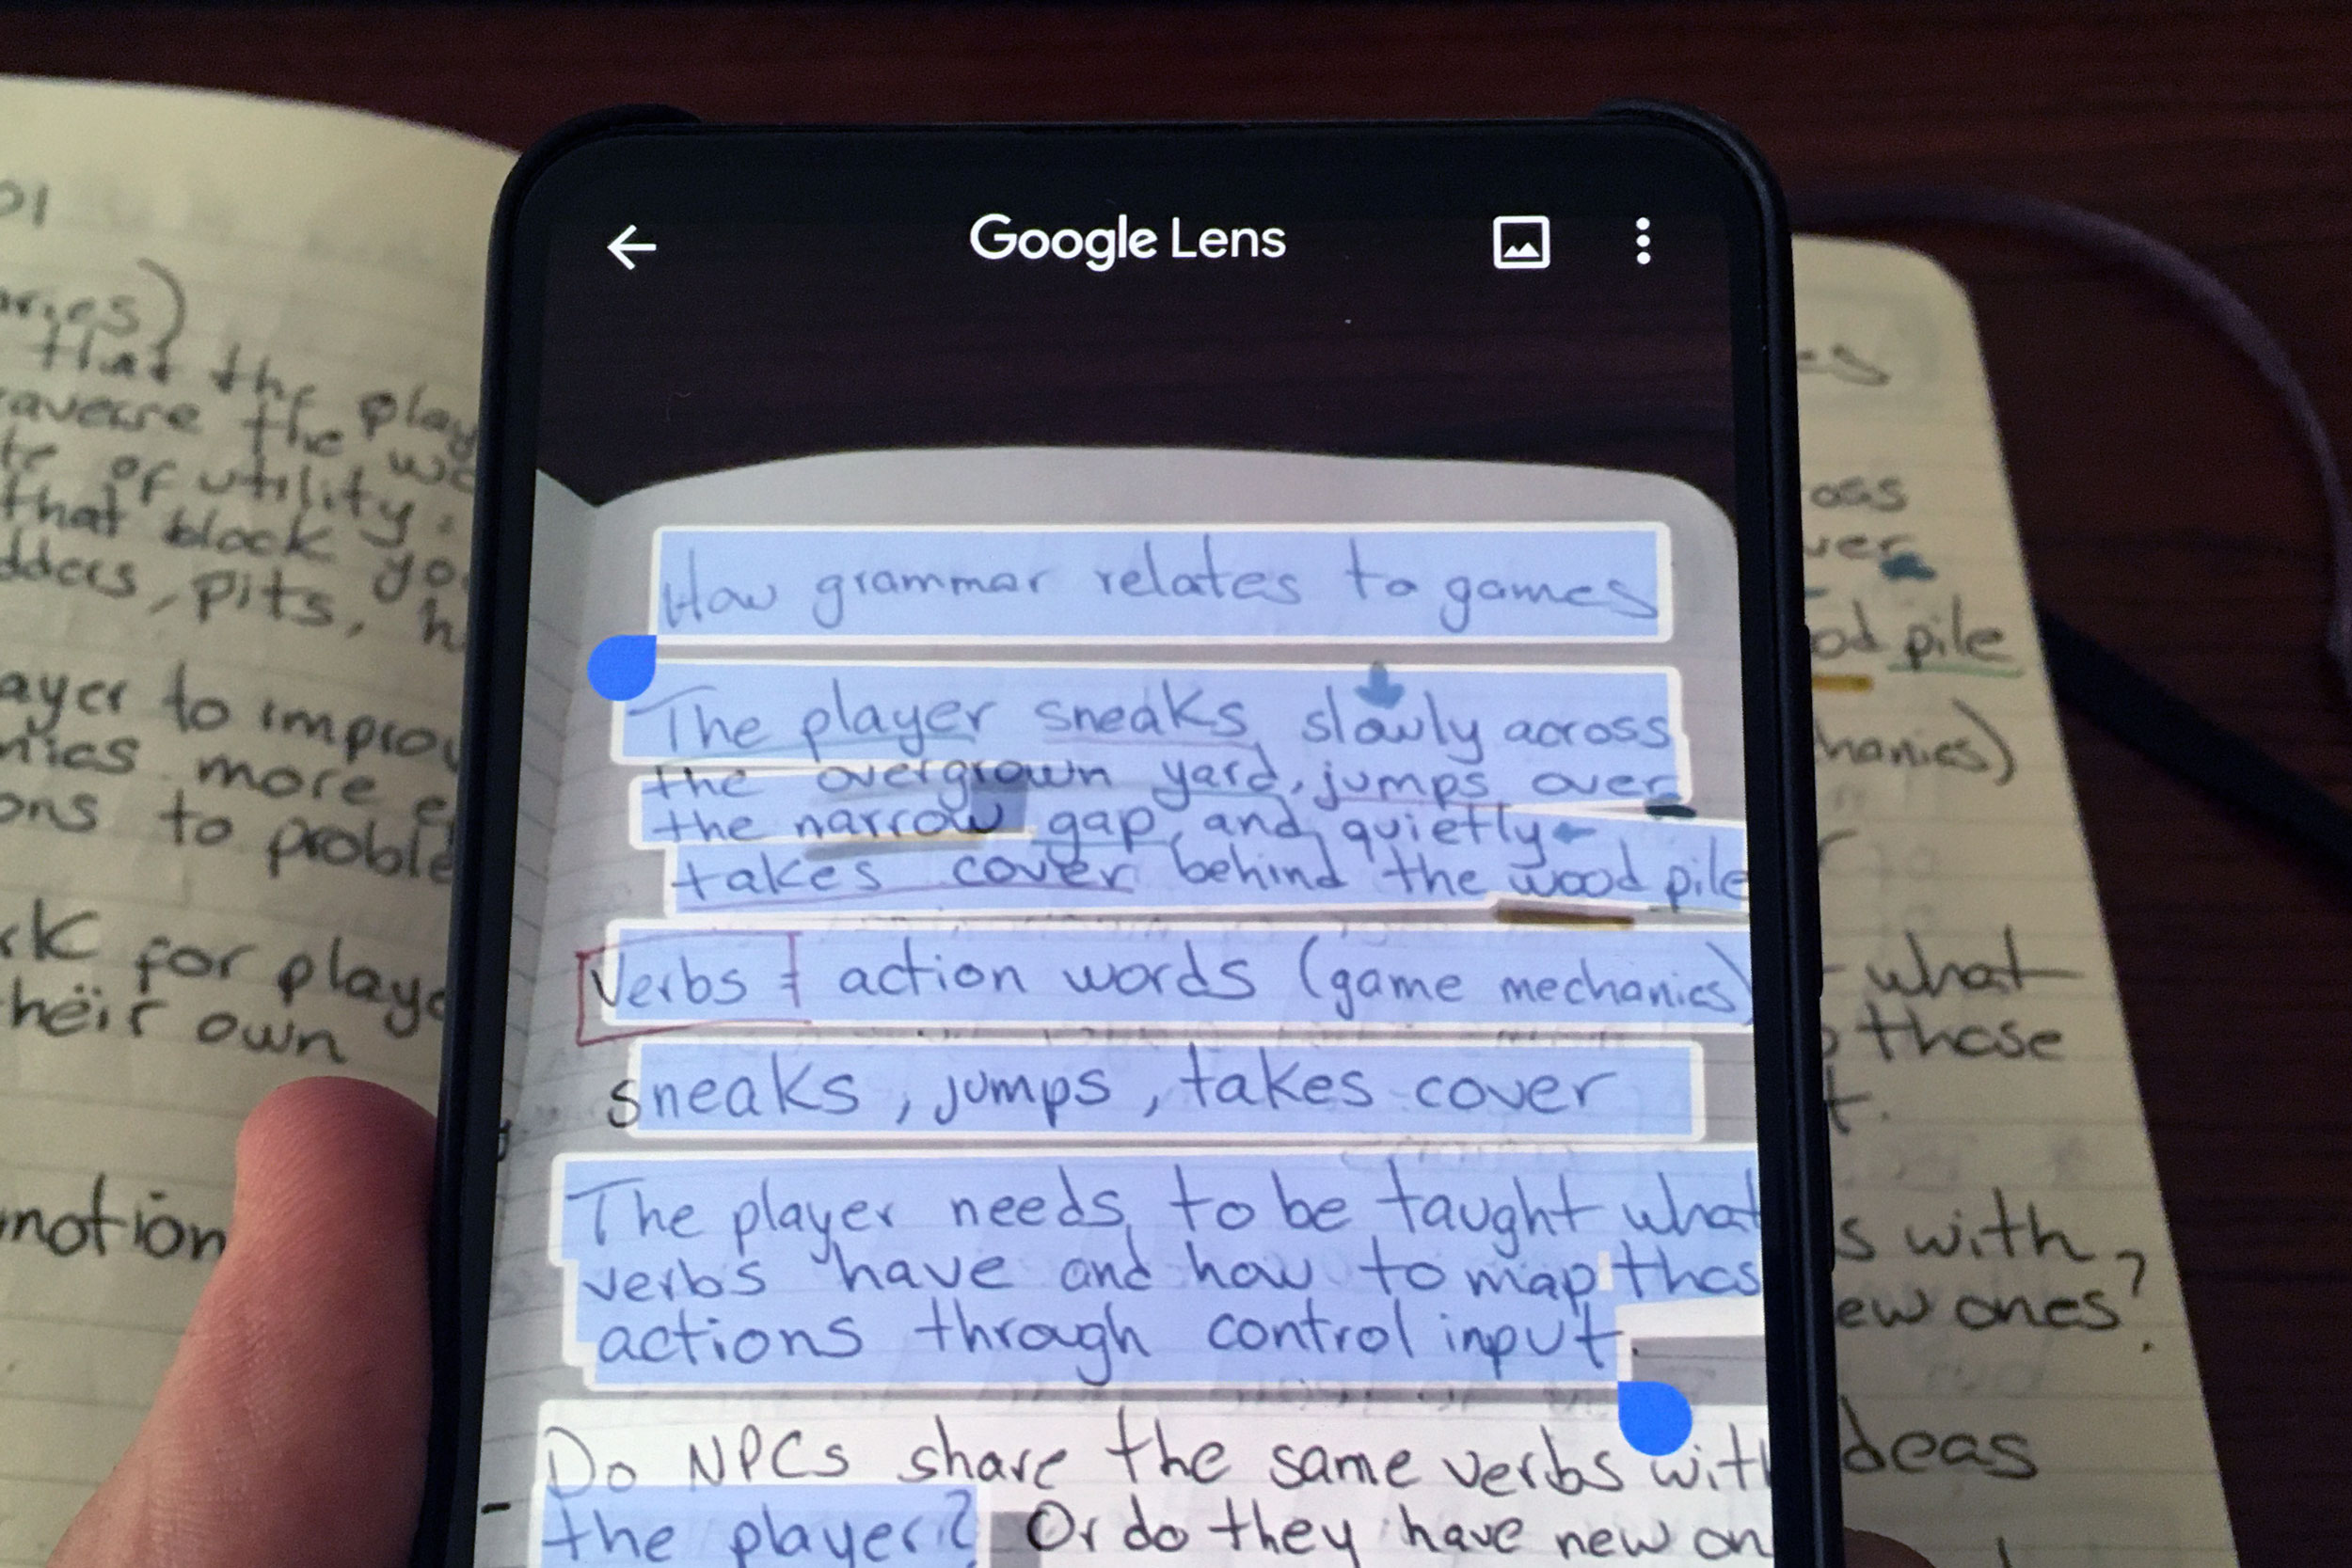 Google Lens
How grammar relates to games
The player sneaks slowly across
the overgrown yard, jumps over
the narrow gap, and quietly
takes cover behind the wood pile
Verbs = action words (game mechanics)
sneaks, jumps, takes cover
The player needs to be taught what
verbs have and how to map thos
actions through control input.
Do NPCs share the same verbs with
the player? Or do they have new on
01
that the play
of utility.
that block yo
pits, h
to improv
more e
ons to proble
for playe
their own
motion
oss
ver
od pile
hanics)
what
those
t.
s with
ew ones?
deas